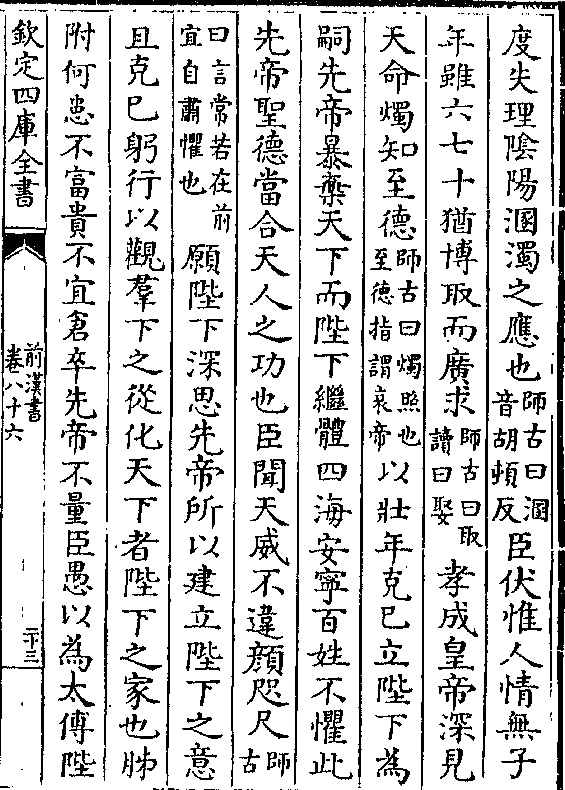 度失理隂陽溷濁之應也師古曰溷音胡頓反臣伏惟人情無子
年雖六七十猶博取而廣求師古曰取讀曰娶孝成皇帝深見
天命燭知至德師古曰燭照也至德指謂哀帝以壯年克己立陛下為
嗣先帝暴棄天下而陛下繼體四海安寧百姓不懼此
先帝聖德當合天人之功也臣聞天威不違顔咫尺師古
曰言常若在前宜自肅懼也願陛下深思先帝所以建立陛下之意
且克己躬行以觀羣下之從化天下者陛下之家也胏
附何患不富貴不宜倉卒先帝不量臣愚以為太傅陛
欽定四庫全書
前漢書
卷八十六
二十三